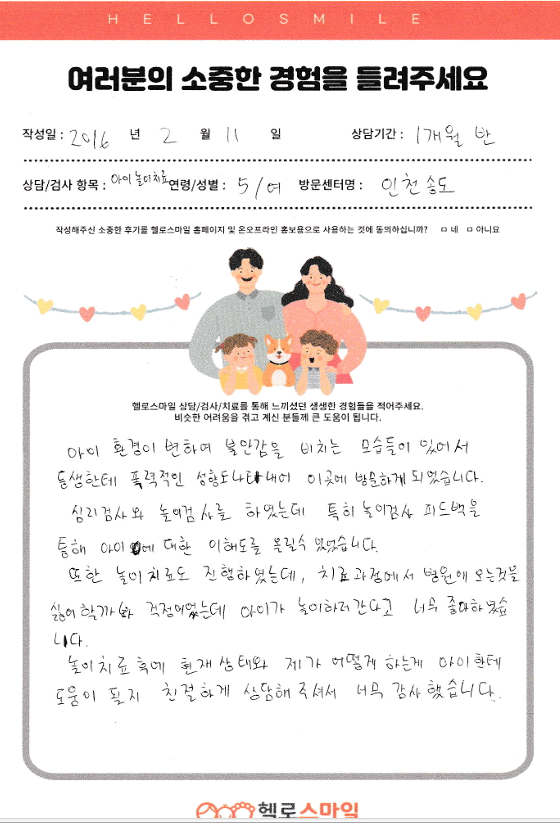 HELLOSMILE
여러분의 소중한 경험을 들려주세요
작성일 : 2016 년 2 월 11 일 상담기간 : 1개월 반
상담/검사 항목 : 아이놀이치료 연령/성별 : 5/여 방문센터명 : 인천송도
작성해주신 소중한 후기를 헬로스마일 홈페이지 및 온오프라인 홍보용으로 사용하는 것에 동의하십니까? ㅁ 네 ㅁ 아니요
헬로스마일 상담/검사/치료를 통해 느끼셨던 생생한 경험들을 적어주세요.
비슷한 어려움을 겪고 계신 분들께 큰 도움이 됩니다.
아이 환경이 변하여 불안감을 비치는 모습들이 있어서
동생한테 폭력적인 성향도 나타내어 이곳에 방문하게 되었습니다.
심리검사와 놀이검사를 하였는데 특히 놀이검사 피드백을
통해 아이에 대한 이해도를 올릴수 있었습니다.
또한 놀이치료도 진행하였는데, 치료과정에서 병원에 오는것을
싫어할까봐 걱정이었는데 아이가 놀이하러간다고 너무 좋아하였습
니다.
놀이치료 후에 현재상태와 제가 어떻게 하는게 아이한테
도움이 될지 친절하게 상담해 주셔서 너무 감사했습니다.
헬로스마일